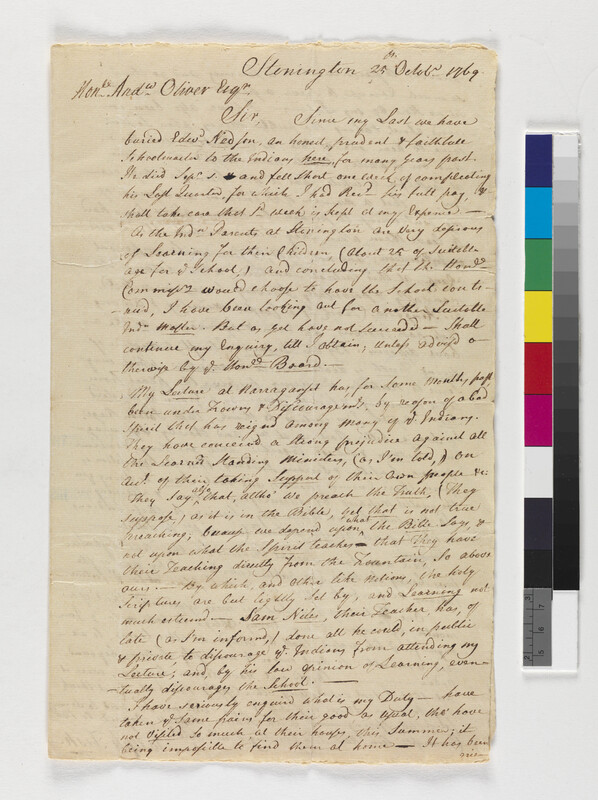 Stonington 25th Octobr 1769.
Honble Andw Oliver Esqr.
Sir, Since my Last we have
buried Edwd Nedson, an honest, prudent & faithfull
Schoolmaster to the Indians here, for many years past.
He died Sepr and fell Short one week of compleating
his Last Quarter, for which I had Recd his full pay, &
shall take care that sd week is kept at my Expense —
As the Indn Parents at Stonington are very desirous
of Learning for their Children, (About 25 of Suitable
age for ye School,) and concluding that the Hond
Commissrs would choose to have the School conti-
-nued, I have been looking out for another Suitable
Indn Master. But as yet have not succeeded — Shall
continue my Enquiry, till I obtain; unless advisd o-
therwise by ye Honrd Board. —
My Lecture at Narraganset has, for some months past
been under Frowns & Discouragemts, by reason of a bad
Spirit that has reignd among many of ye Indians.
They have conceived a strong prejudice against all
the Learned Standing Ministers, (as I'm told,) on
acct. of their taking Support of their own people &c
They Say also that, altho' we preach the Truth, (They
suppose,) as it is in the Bible, yet that is not true
preaching; because we depend upon what the Bible Says, &
not upon what the Spirit teaches — that They have
their Teaching directly from the Fountain, So above
ours. — By which, and other like notions, the holy
Scriptures are but lightly Set by, and Learning not
much esteemd — Sam Niles, their Teacher has, of
late (as I'm informd,) done all he could, in public
& private to discourage ye Indians from attending my
Lecture; and, by his low opinion of Learning, even-
-tually discourages the School. —
I have seriously enquird what is my Duty — have
taken ye Same pains for their good as usual, tho' have
not visited So much at their houses, this Summer; it
being impossible to find them at home — It has been